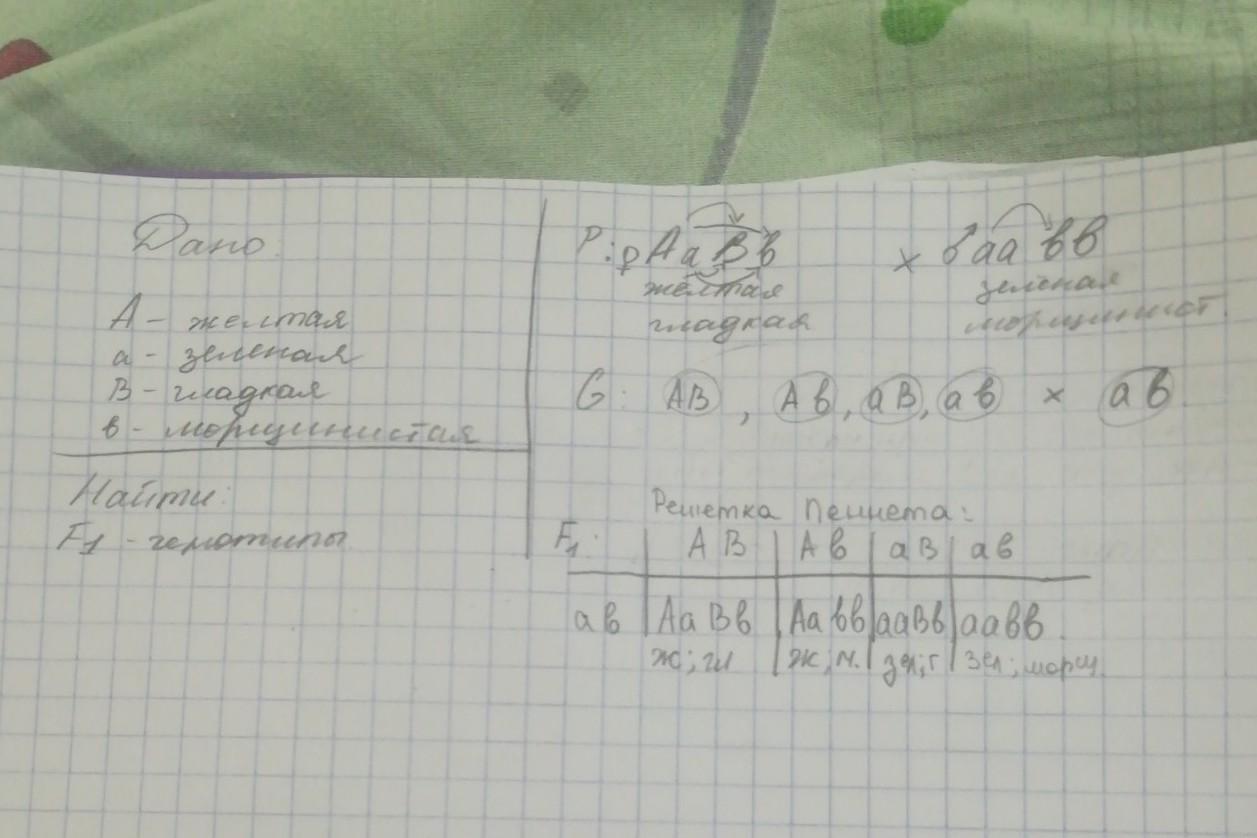 Дано:
А - желтая
а - зеленая
В - гладкая
в - морщинистая
Найти:
F1 - генотипы
Р: ♀ Аа Вв × ♂ аа вв
желтая зеленая
гладкая морщинист.
G: АВ, Ав, аВ, ав × ав
Решетка Пеннета:
F1: АВ Ав аВ ав
ав АаВв Аавв ааВв аавв
ж; гл ж; м. зел; г зел; морщ